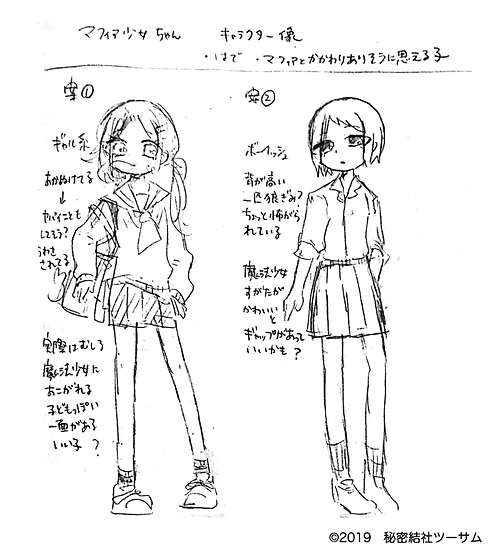 マフィア少女ちゃん　キャラクター像
・はで　・マフィアとかかわりありそうに思える子
案①
ギャル系
あかぬけてる
↓
ヤバイことも
してそう?
うわさ
されてる
実際はむしろ
魔法少女に
あこがれる
子どもっぽい
一面がある
いい子?
案②
ボーイッシュ
背が高い
一匹狼ぎみ?
ちょっと怖がら
れている
魔法少女
すがたが
かわいい
と
ギャップがあって
いいかも?
©2019　秘密結社ツーサム